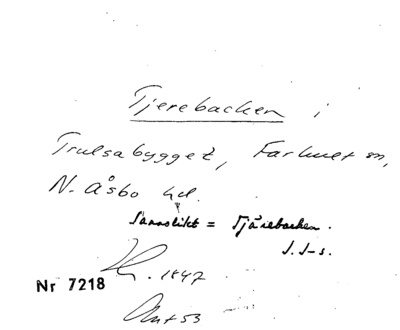 Tjerebacken i
Trulsabygget, Farhult sn,
N. Åsbo hd.
Sannolikt = Tjärebacken.
J. J-s.
1847
Nr 7218
53